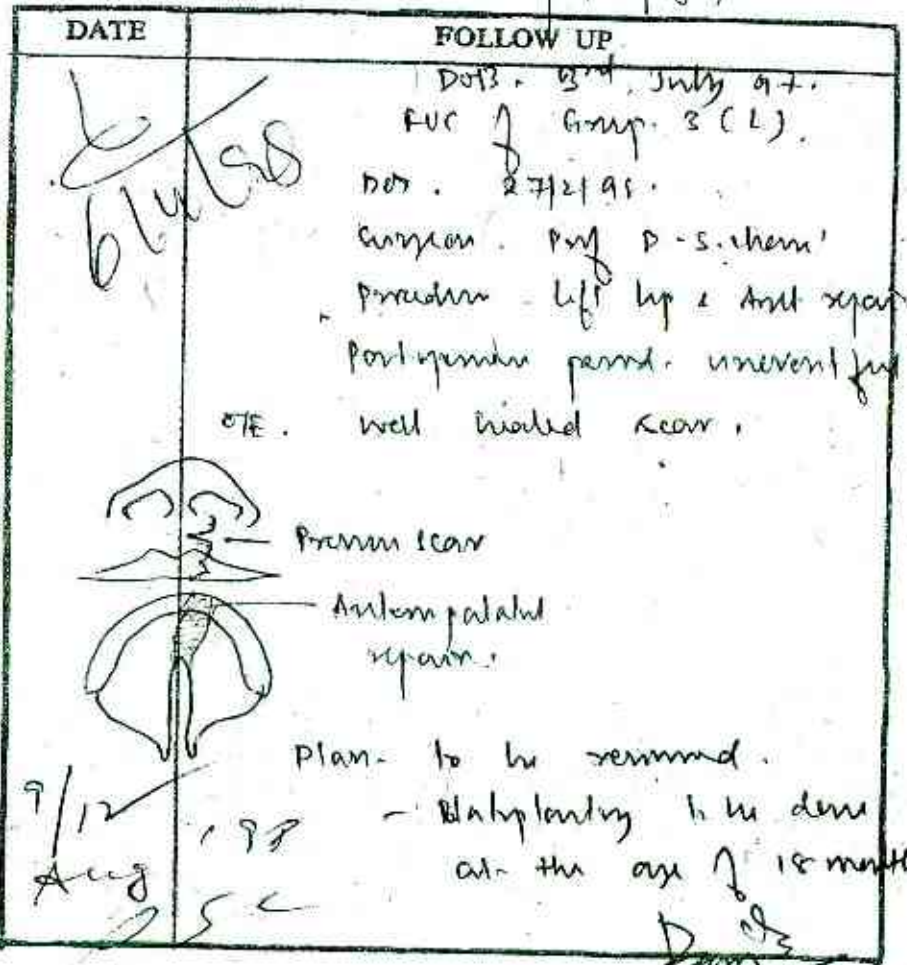 DATE
FOLLOW UP
DOB. 3rd July 97.
FUC of Group. 3 (L).
6/4/98
DOS. 27/2/98.
Surgeon. Prof
Procedure - Left lip & Ant repair
Postoperative period. uneventful
O/E. well healed scar.
Previous scar
Anterior palatal
repair.
Plan- to be reviewed.
9/12
- Palatoplasty to be done
'98
at the age of 18 month
Aug